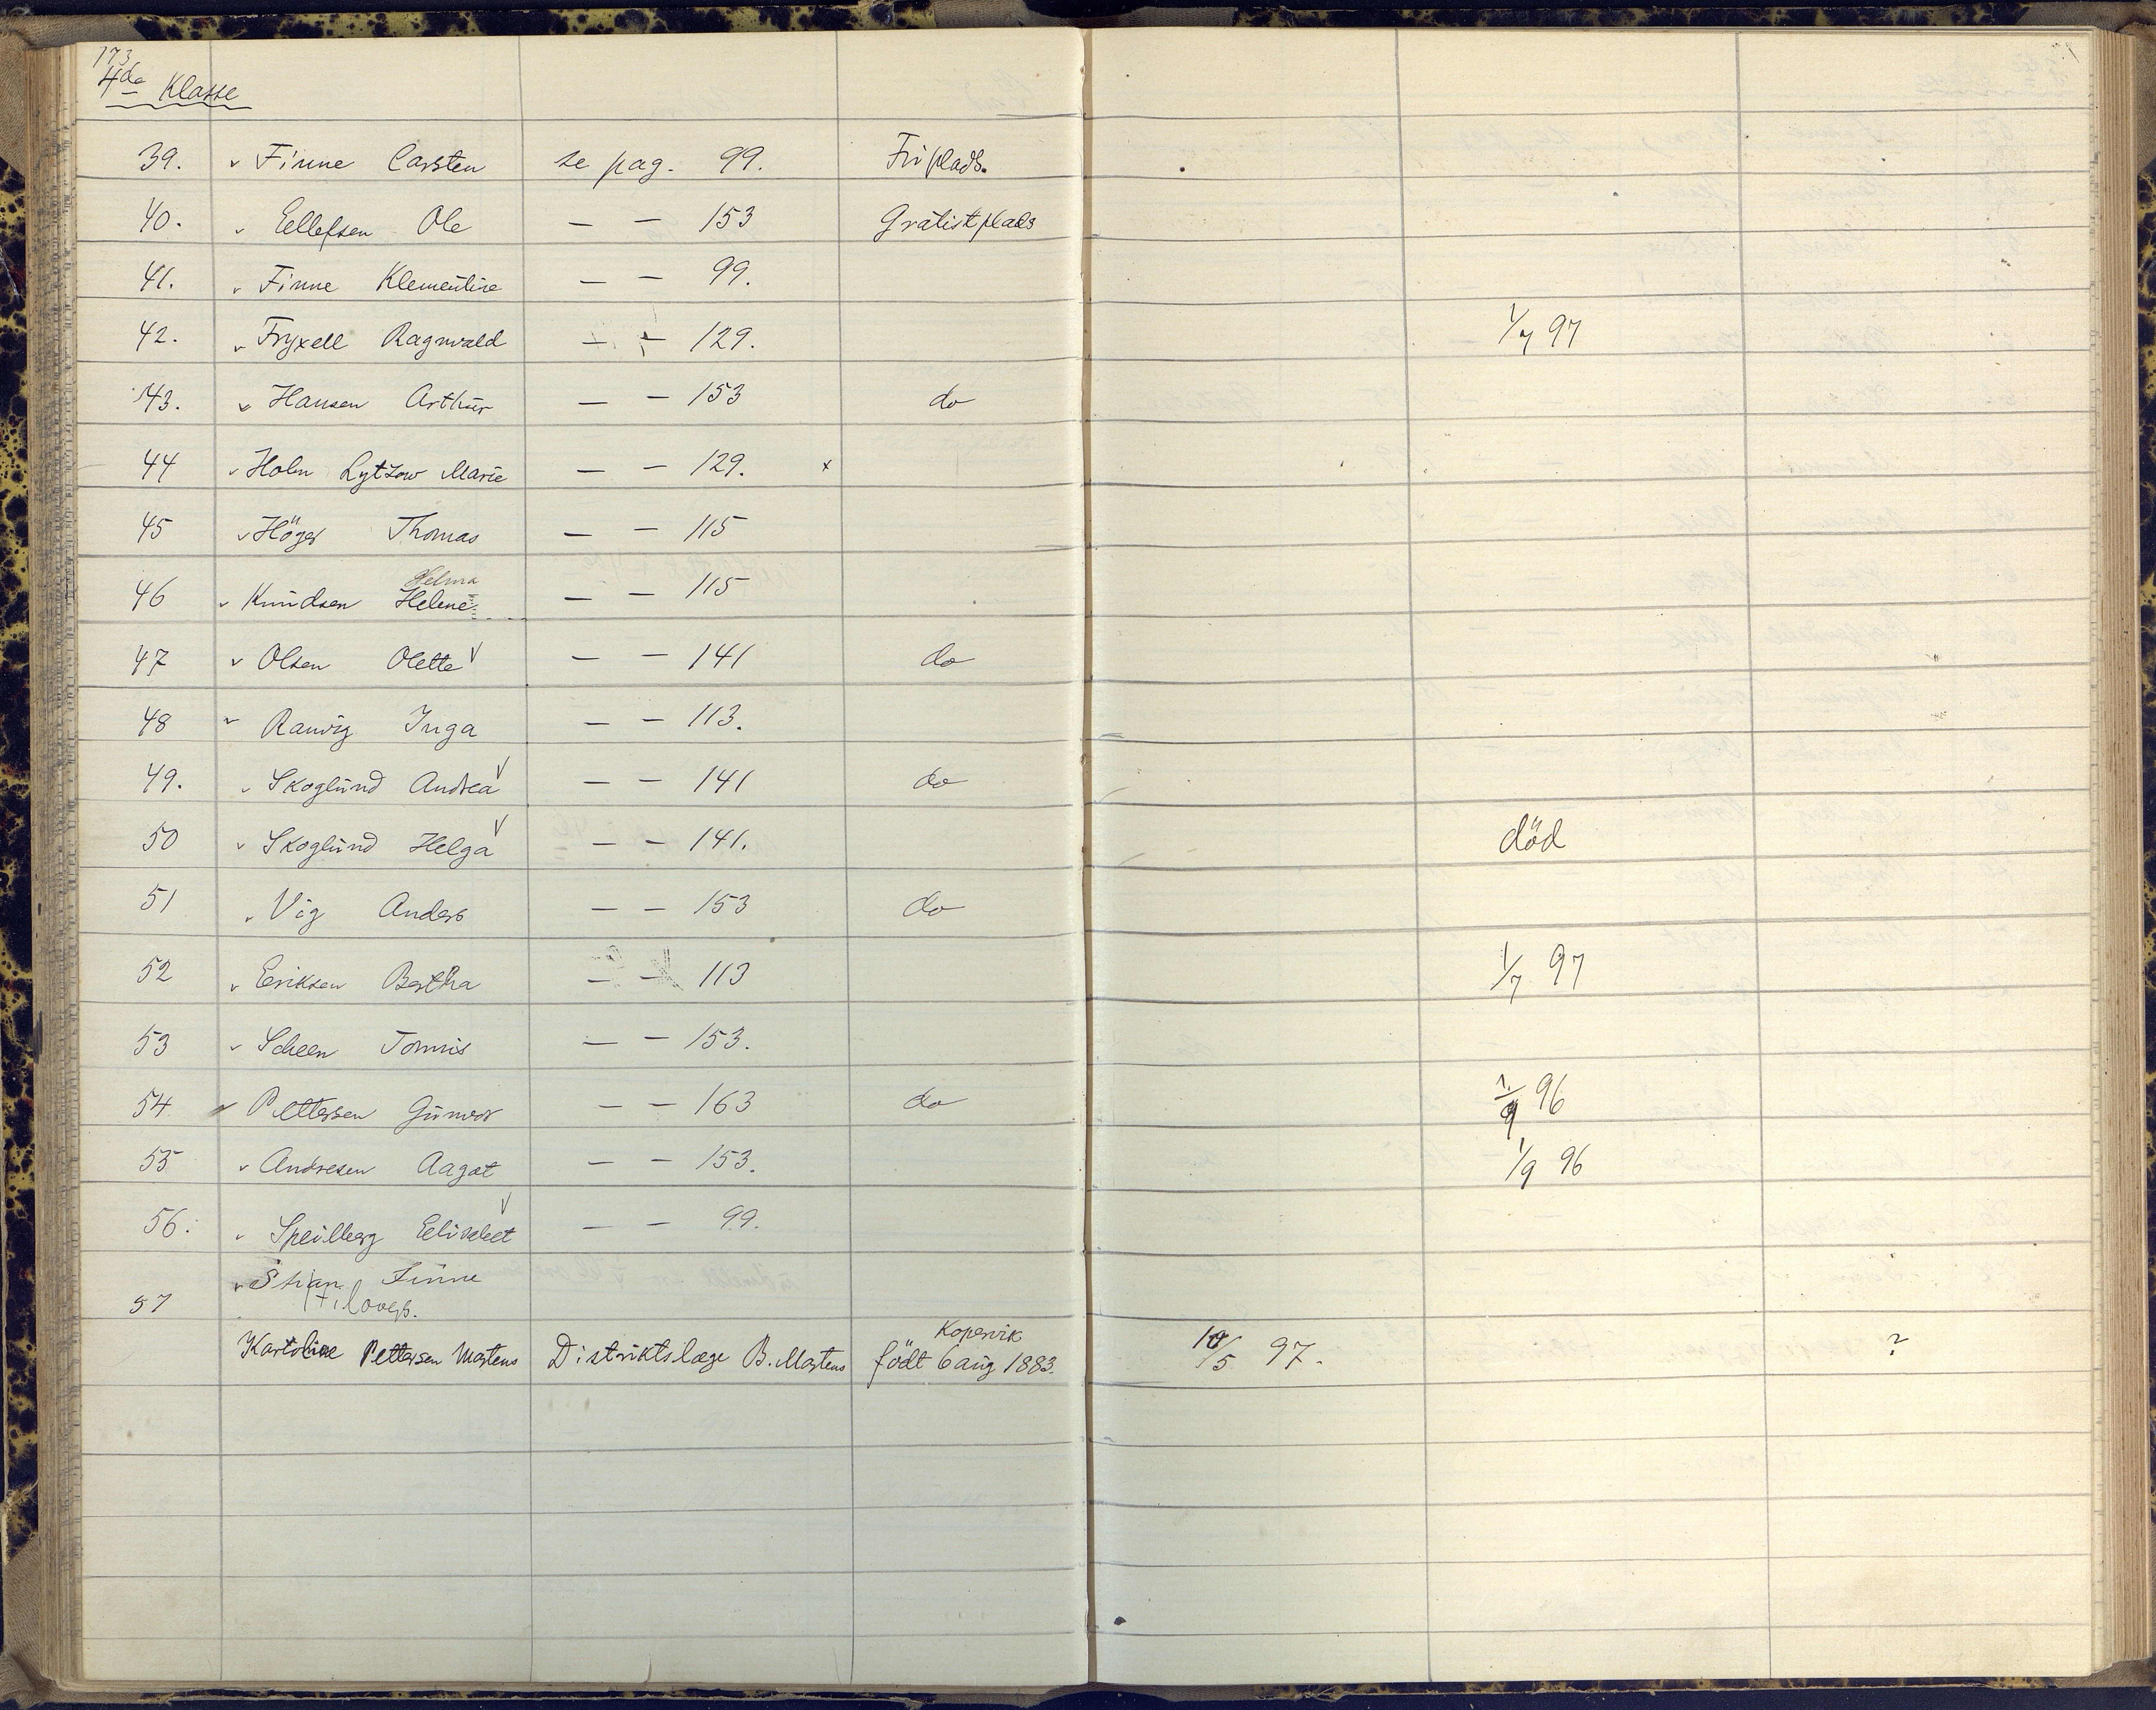 173
4de Klasse
39. v Finne Carsten se pag. 99. Friplads.
40. v Ellefsen Ole — — 153 Gratistplads
41. v Finne Klementine — — 99.
42. v Fryxell Ragnvald — — 129. 1/7 97
43. v Hansen Arthur — — 153 do
44 v Holm Lytzow Marie — — 129. x
45 v Höyer Thomas — — 115
Helma
46 v Knudsen Helene — — 115
47 v Olsen Olette v — — 141 do
48 v Ranvig Inga — — 113.
49. v Skoglund Andrea v — — 141 do
50 v Skoglund Helga v — — 141. död
51 v Vig Anders — — 153 do
52 v Eriksen Bertha — — 113 1/7 97
53 v Scheen Tomris — — 153.
54 v Pettersen Gunvor — — 163 do 1/9 96
55 v Andresen Aagot — — 153. 1/9 96
56. v Speilberg Elisabet v — — 99.
v Stian Finne
57
Kopervik
Karoline Pettersen Martens Distriktslæge B. Martens födt 6 aug 1883. 10/5 97. ?